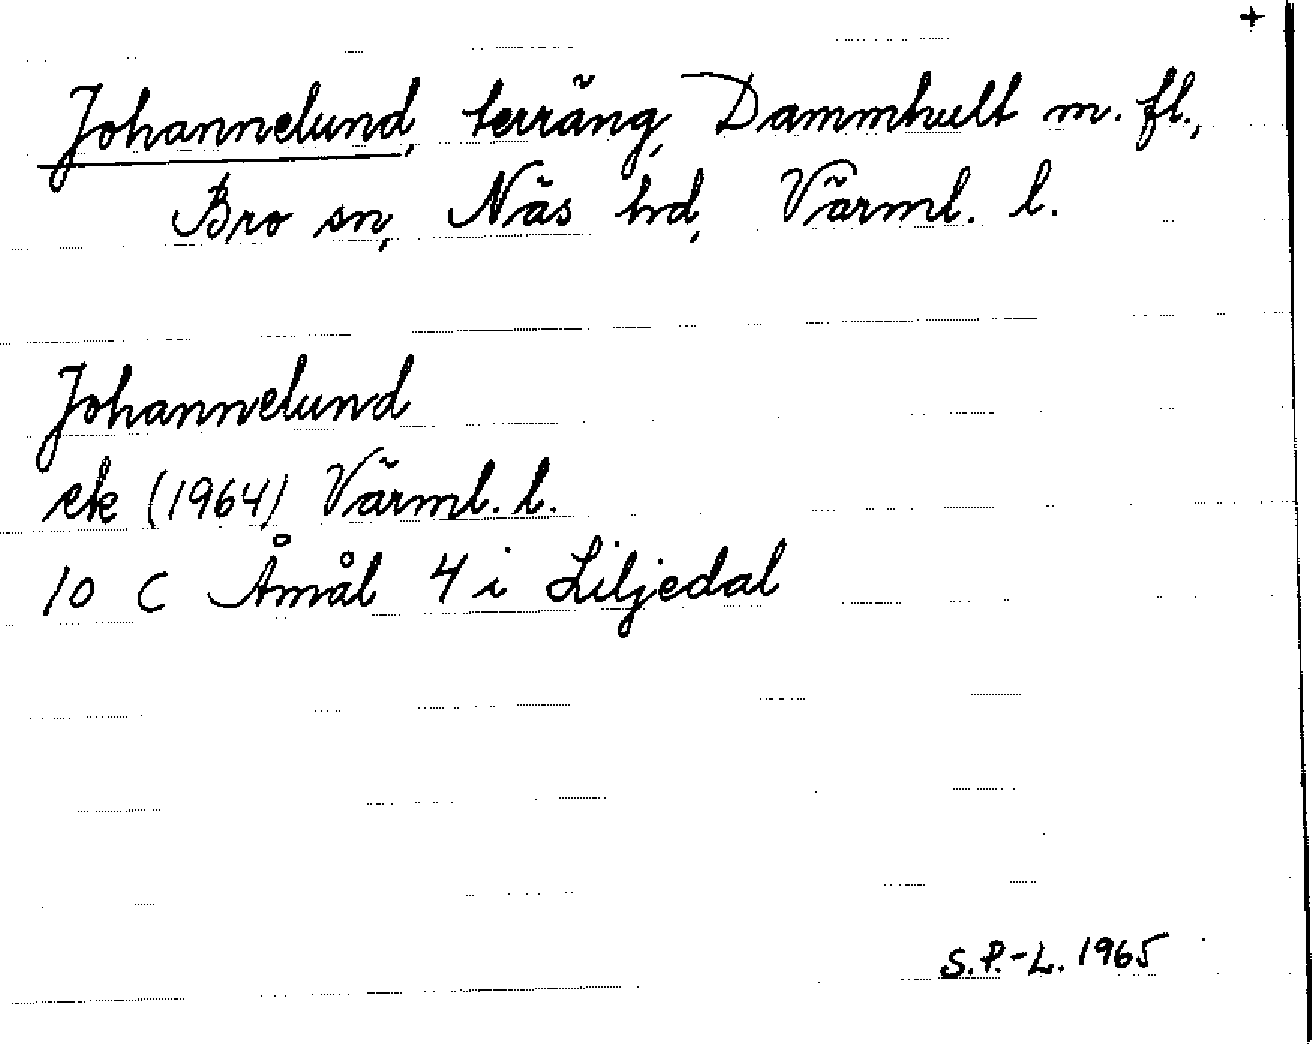 +
Johannelund, terräng, Dammhult m. fl.,
Bro sn, Näs hd, Värml. l.
Johannelund
ek (1964) Värml. l.
10 C Åmål 4 i Liljedal
S.P.-L. 1965